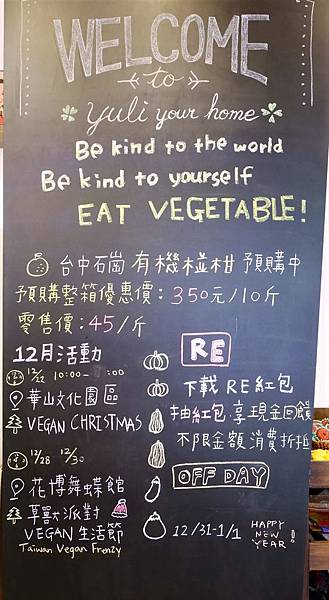 WELCOME
to
yuli your home
Be kind to the world
Be kind to yourself
EAT VEGETABLE!
台中石崗 有機椪柑 預購中
預購整箱優惠價：350元/10斤
零售價：45/斤
12月活動
12/22 10:00-
:00
華山文化園區
VEGAN CHRISTMAS
12/28 12/30
花博舞蝶館
草獸派對
VEGAN 生活節
Taiwan Vegan Frenzy
RE
下載 RE紅包
抽紅包.享現金回饋
不限金額 消費折抵
OFF DAY
12/31-1/1
HAPPY
NEW
YEAR!